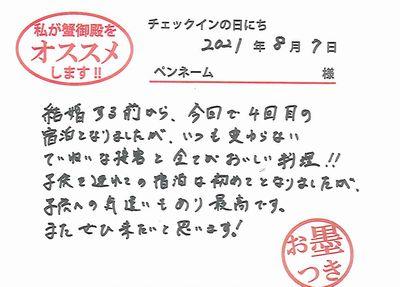 私が蟹御殿を
オススメ
します!!
チェックインの日にち
2021年8月7日
ペンネーム 様
結婚する前から、今回で4回目の
宿泊となりましたが、いつも変わらない
ていねいな接客と全てがおいしい料理!!
子供を連れての宿泊は初めてとなりましたが、
子供への気遣いもあり最高です。
またぜひ来たいと思います!
お墨
つき